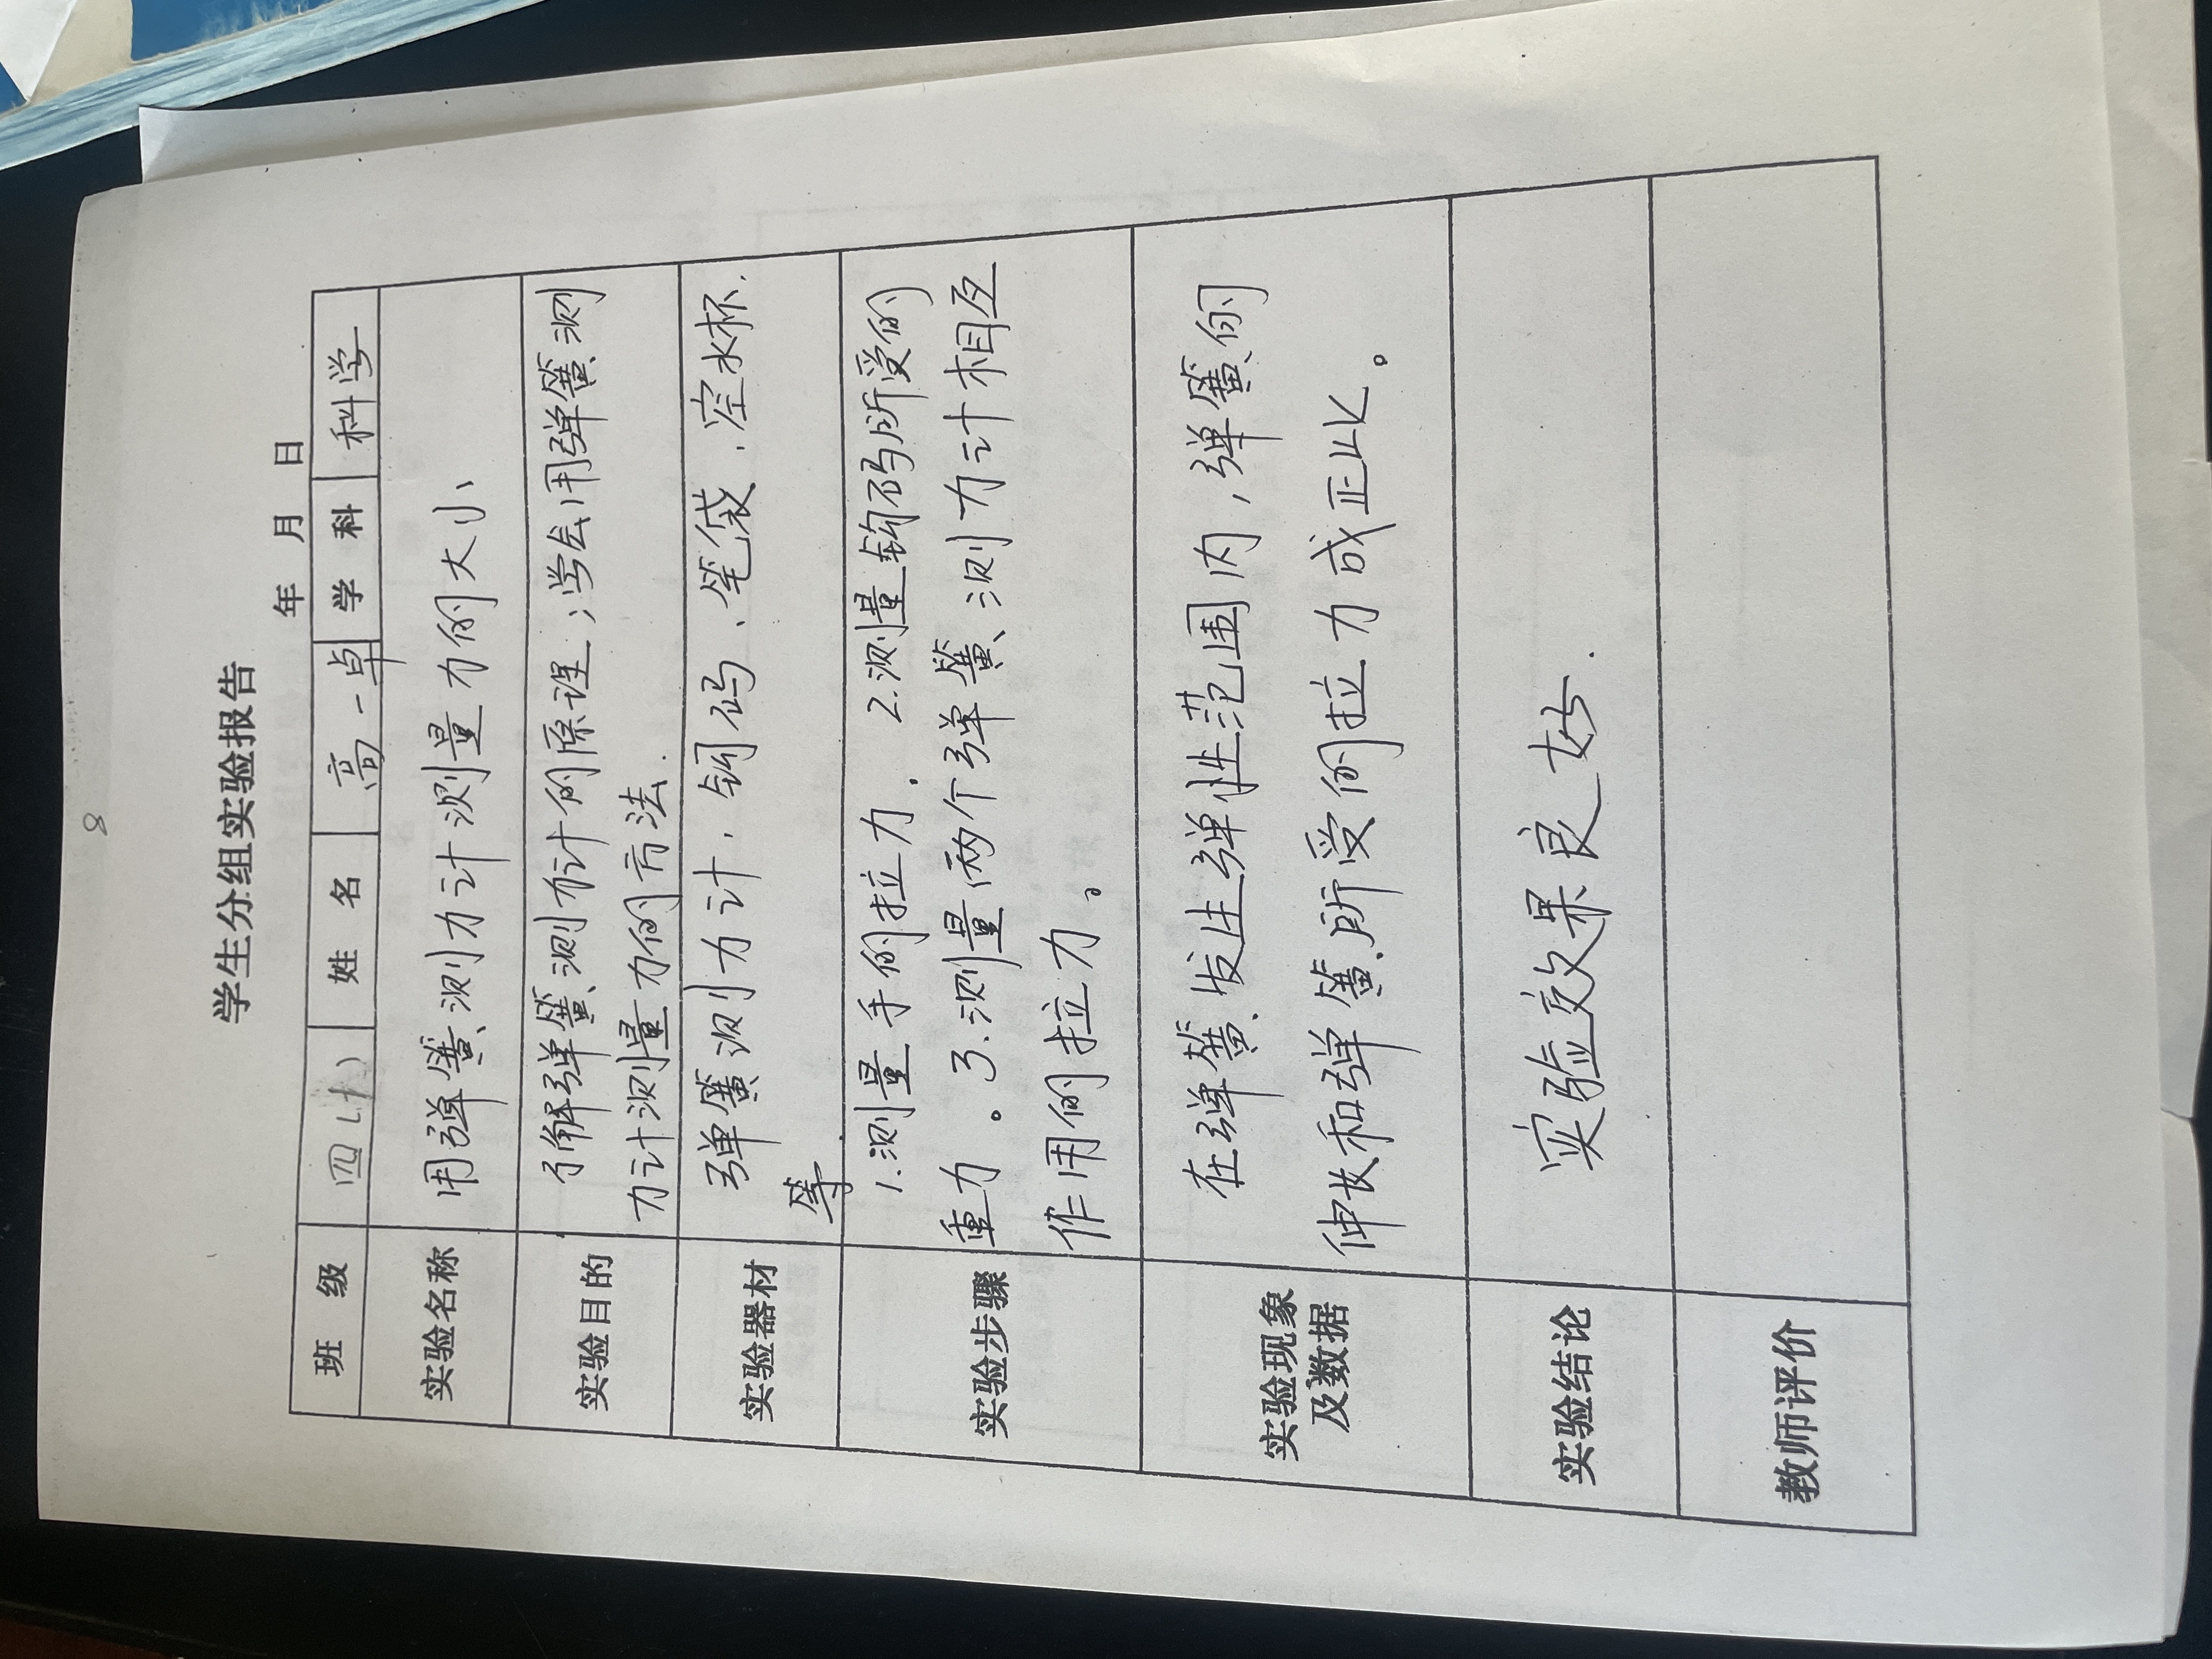 8
学生分组实验报告
年 月 日
班 级 四(十) 姓 名 高一卓 学 科 科学
实验名称 用弹簧测力计测量力的大小
实验目的 了解弹簧测力计的原理;学会用弹簧测
力计测量力的方法.
实验器材 弹簧测力计、钩码、笔袋、空水杯.
等
实验步骤 1.测量手的拉力. 2.测量钩码所受的
重力。3.测量两个弹簧测力计相互
作用的拉力。
实验现象
及数据
在弹簧发生弹性范围内,弹簧的
伸长和弹簧所受的拉力成正比。
实验结论 实验效果良好.
教师评价